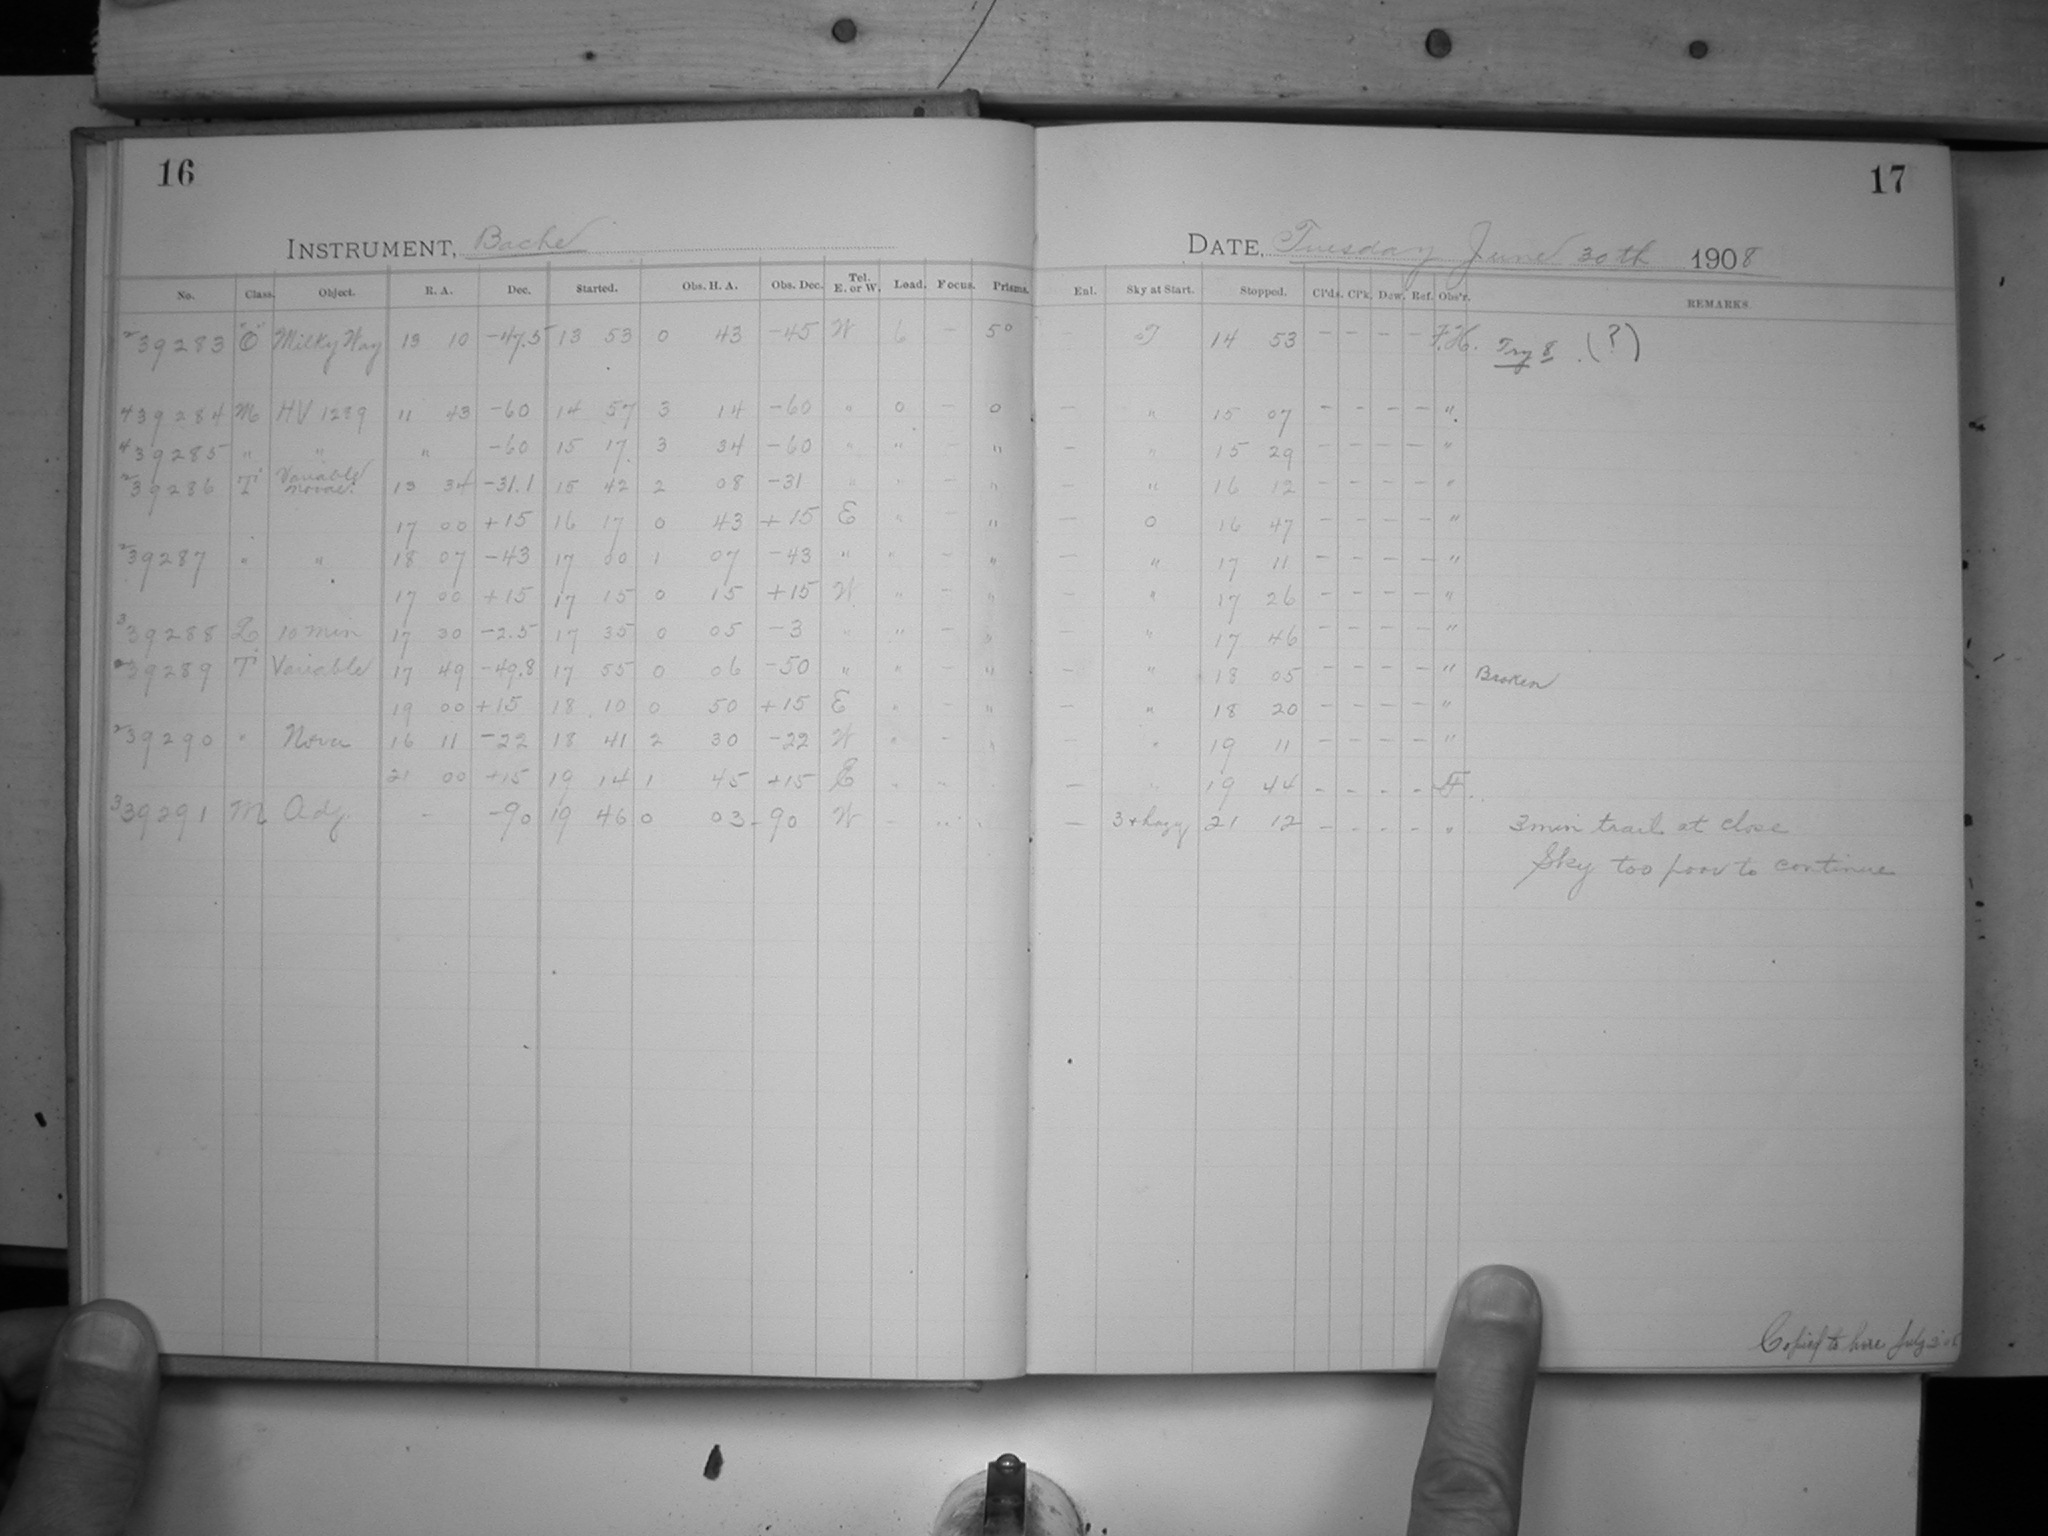 16
17
INSTRUMENT, Bache
DATE, Tuesday June 30th 1908
No. Class. Object. R. A. Dec. Started. Obs. H. A. Obs. Dec. Tel. E. or W. Load. Focus. Prisms. Enl. Sky at Start. Stopped. Cl'ds. Cl'k. Dew. Ref. Obs'r. REMARKS
2 39283 "O" Milky Way 13 10 -47.5 13 53 0 43 -45 W 6 - 5° - 14 53 - - - - F.H. Try 8 (?)
4 39284 M HV 1289 11 43 -60 14 57 3 14 -60 " 0 - 0 - " 15 07 - - - - "
4 39285 " " " -60 15 17 3 34 -60 " " - " - " 15 29 - - - - "
2 39286 T Variable Novae 13 34 -31.1 15 42 2 08 -31 " " - " - " 16 12 - - - - "
17 00 +15 16 17 0 43 +15 E " - " - 0 16 47 - - - - "
2 39287 " " 18 07 -43 17 00 1 07 -43 " " - " - " 17 11 - - - - "
17 00 +15 17 15 0 15 +15 W " - " - " 17 26 - - - - "
3 39288 L 10 min 17 30 -2.5 17 35 0 05 -3 " " - " - " 17 46 - - - - "
39289 T Variable 17 49 -49.8 17 55 0 06 -50 " " - " - " 18 05 - - - - " Broken
19 00 +15 18 10 0 50 +15 E " - " - " 18 20 - - - - "
2 39290 " Nova 16 11 -22 18 41 2 30 -22 W " - " - " 19 11 - - - - "
21 00 +15 19 14 1 45 +15 E " - - " 19 44 - - - - F.
3 39291 M Adj. - -90 19 46 0 03 -90 W - - 3 + hazy 21 12 - - - - " 3 min trail at close
Sky too poor to continue
Copied to here July 3 '08